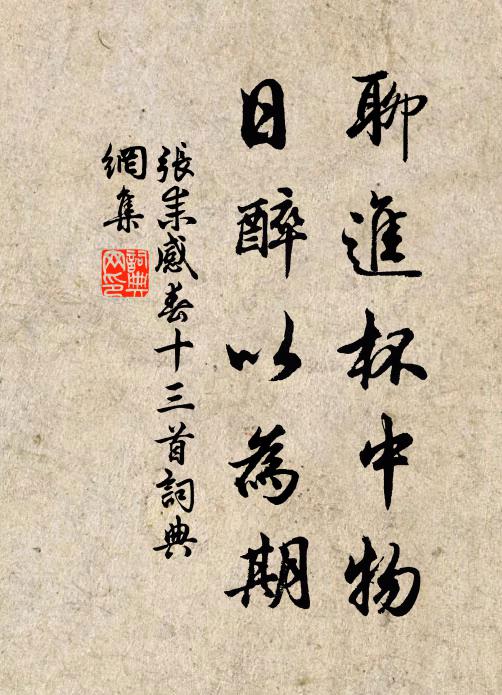 聊進杯中物
日醉以為期
張耒感春十三首詞典
網集
詞典
网印